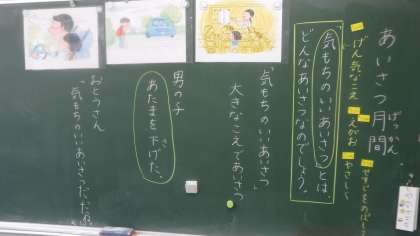 あいさつ月間
げっかん
げん気なこえ
えがお
やさしく
「気もちのいいあいさつ」とは
どんなあいさつなのでしょう。
「気もちのいいあいさつ」
大きなこえであいさつ
男の子
あたまを下げた。
さ
おとうさん
「気もちのいいあいさつだったね